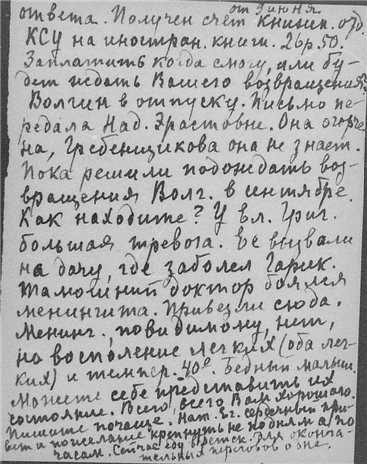 ответа. Получен счёт от 9 июня Книжн. отд.
КСУ на иностран. книги. 26 р. 50.
Заплатить когда смогу, или бу-
дет ждать Вашего возвращения?
Волгин в отпуску. Письмо пе-
редала Над. Эрастовне. Она огорче-
на, Гребенщикова она не знает.
Пока решили подождать воз-
вращения Волг. в сентябре.
Как находите? У Вл. Григ.
большая тревога. Ее вызвали
на дачу, где заболел Гарик.
Тамошний доктор боялся
менингита. Привезли сюда.
Менинг., повидимому, нет,
но воспаление легких (оба лег-
ких) и темпер. 40°. Бедный мальчик.
Можете себе представить их
состояние. Всего, всего Вам хорошего.
Пишите почаще. Нат. Ег. сердечный при-
вет и пожелание крепнуть не по дням а по
часам. Сейчас еду для оконча-
тельных переговоров о